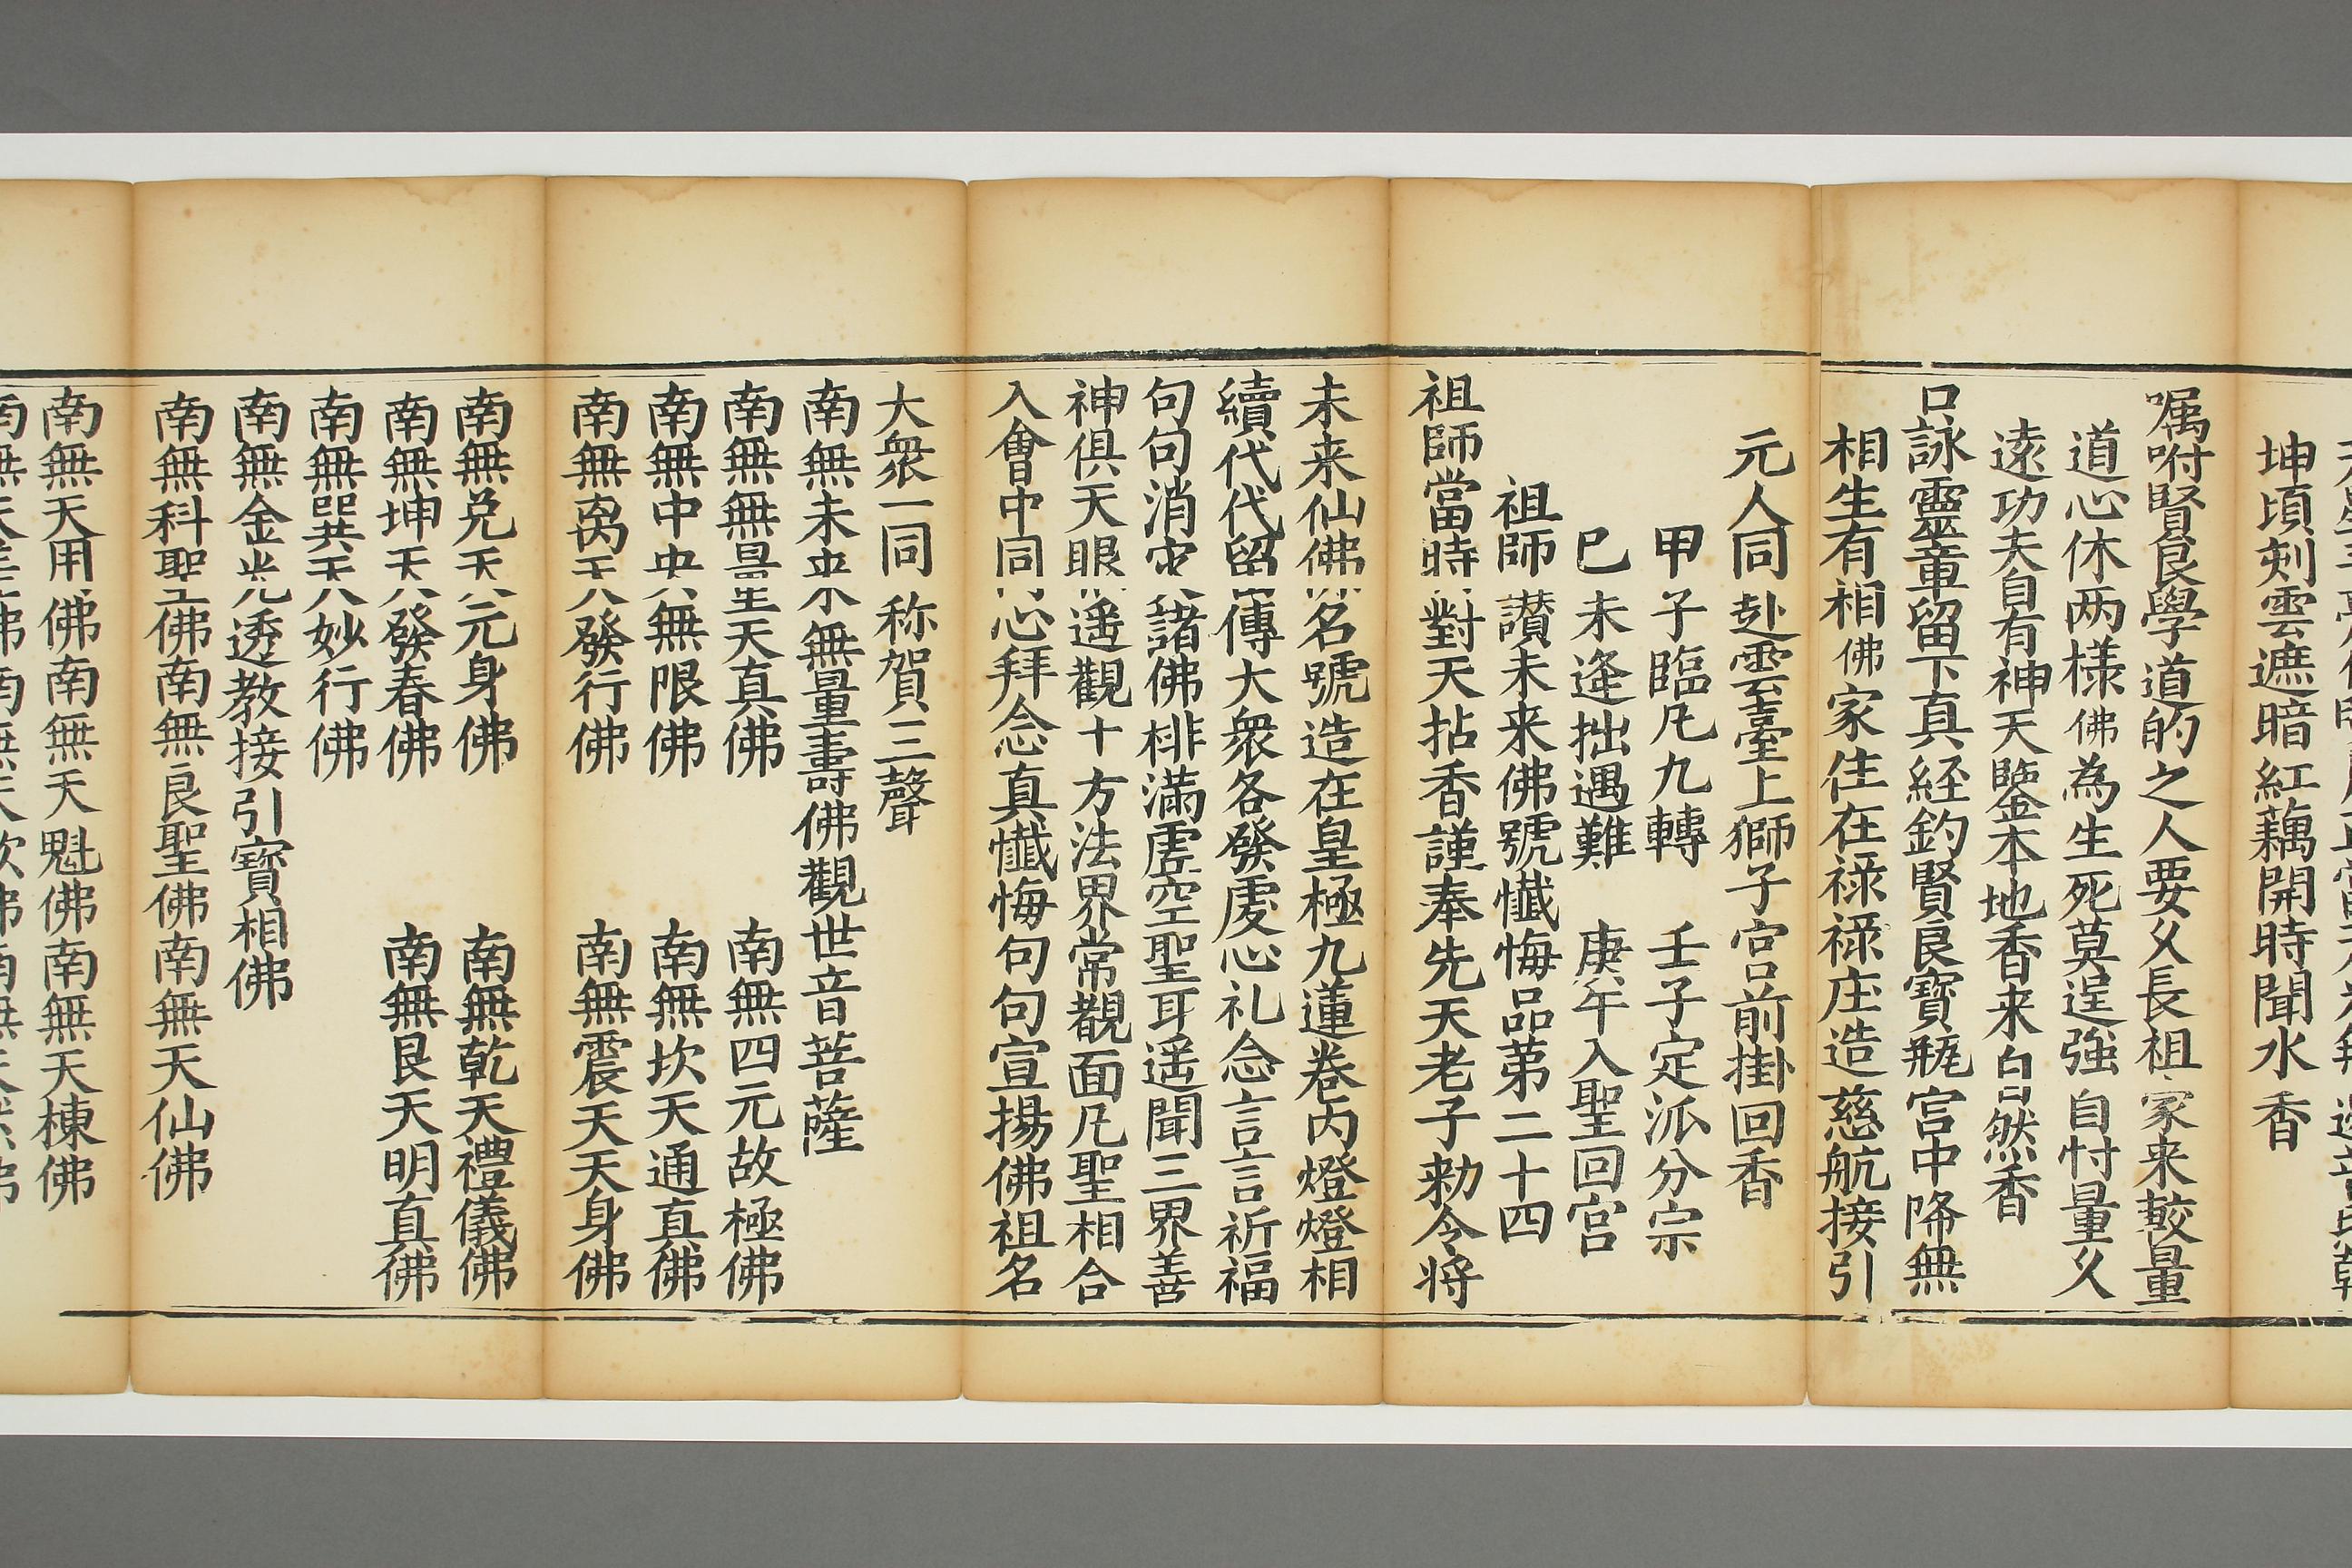 坤頃剡雲遮暗紅藕開時聞水香
囑咐賢良學道的之人要久長祖家来較量
道心休两樣佛為生死莫逞強自忖量久
遠功夫自有神天鑒本地香来自然香
口詠靈章留下真経釣賢良寶瓶宫中降無
相生有相佛家住在禄禄庄造慈航接引
元人同赴雲臺上獅子宫前掛回香
甲子臨凡九轉　壬子定派分宗
巳未逄拙遇難　庚午入聖回宫
祖師讃未来佛號懺悔品苐二十四
祖師當時對天拈香謹奉先天老子勑令将
未来仙佛名號造在皇極九蓮卷内燈燈相
續代代留傳大衆各發虔心礼念言言祈福
句句消灾諸佛排滿虚空聖耳遥聞三界善
神俱天眼遥觀十方法界常覩面凡聖相合
入會中同心拜念真懺悔句句宣揚佛祖名
大衆一同称賀三聲
南無未来無量壽佛觀世音菩薩
南無無量天真佛　南無四元故極佛
南無中央無限佛　南無坎天通真佛
南無离天發行佛　南無震天天身佛
南無兑天元身佛　南無乾天禮儀佛
南無坤天發春佛　南無艮天明真佛
南無巽天妙行佛
南無金光透教接引寶相佛
南無科聖佛南無良聖佛南無天仙佛
南無天用佛南無天魁佛南無天棟佛